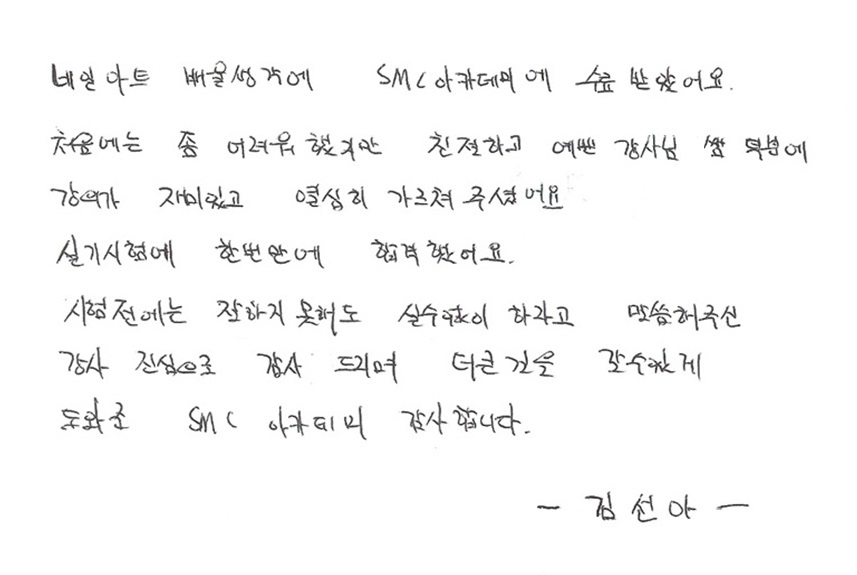 네일아트 배울생각에 SMC아카데미에 수료 받았어요.
처음에는 좀 어려워했지만 친절하고 예쁜 강사님 쌤 덕분에
강의가 재미있고 열심히 가르쳐주셨어요
실기시험에 한번만에 합격했어요.
시험전에는 잘하지못해도 실수없이 하라고 말씀해주신
강사 진심으로 감사 드리며 더큰길을 갈수있게
도와준 SMC 아카데미 감사합니다.
- 김선아 -